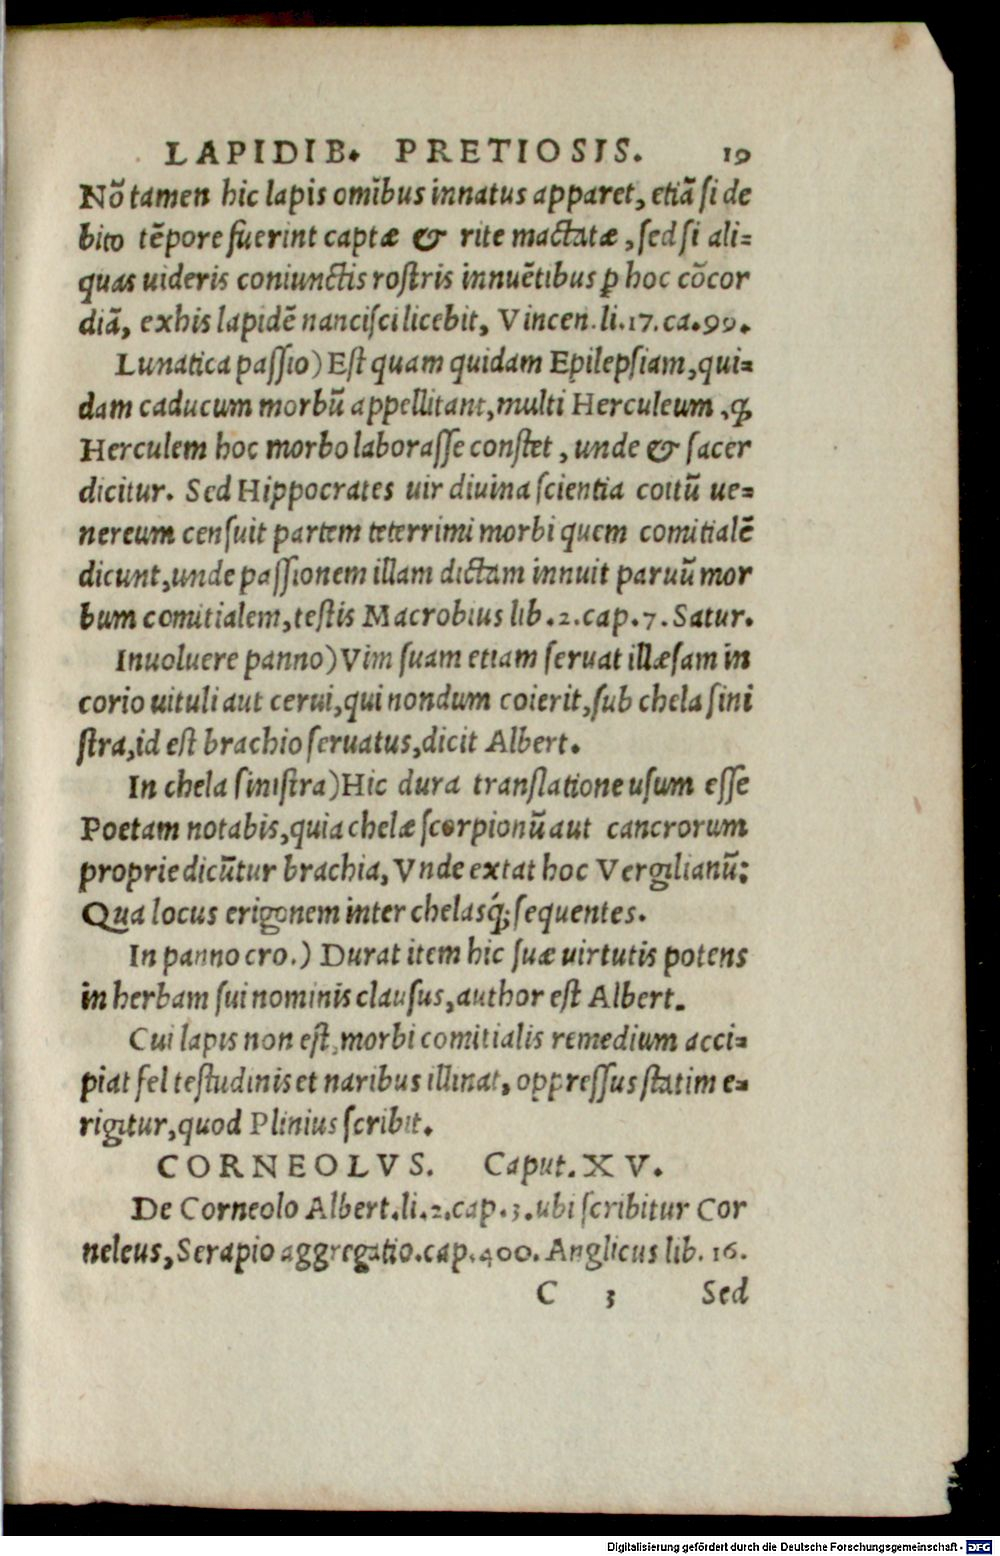 LAPIDIB. PRETIOSIS. 19
Nõ tamen hic lapis omĩbus innatus apparet, etiã si de
bito tẽpore fuerint captæ & rite mactatæ, sed si ali=
quas uideris coniunctis rostris innuẽtibus ꝑ hoc cõcor
diã, exhis lapidẽ nancisci licebit, Vincen. li. 17. ca. 99.
Lunatica passio) Est quam quidam Epilepsiam, qui=
dam caducum morbũ appellitant, multi Herculeum, ꝙ
Herculem hoc morbo laborasse constet, unde & sacer
dicitur. Sed Hippocrates uir diuina scientia coitũ ue=
nereum censuit partem teterrimi morbi quem comitialẽ
dicunt, unde passionem illam dictam innuit paruũ mor
bum comitialem, testis Macrobius lib. 2. cap. 7. Satur.
Inuoluere panno) Vim suam etiam seruat illæsam in
corio uituli aut cerui, qui nondum coierit, sub chela sini
stra, id est brachio seruatus, dicit Albert.
In chela sinistra) Hic dura translatione usum esse
Poetam notabis, quia chelæ scorpionũ aut cancrorum
proprie dicũtur brachia, Vnde extat hoc Vergilianũ:
Qua locus erigonem inter chelasq́; sequentes.
In panno cro.) Durat item hic suæ uirtutis potens
in herbam sui nominis clausus, author est Albert.
Cui lapis non est, morbi comitialis remedium acci=
piat fel testudinis et naribus illinat, oppressus statim e=
rigitur, quod Plinius scribit.
CORNEOLVS. Caput. XV.
De Corneolo Albert. li. 2. cap. 3. ubi scribitur Cor
neleus, Serapio aggregatio. cap. 400. Anglicus lib. 16.
C 3 Sed
Digitalisierung gefördert durch die Deutsche Forschungsgemeinschaft - DFG